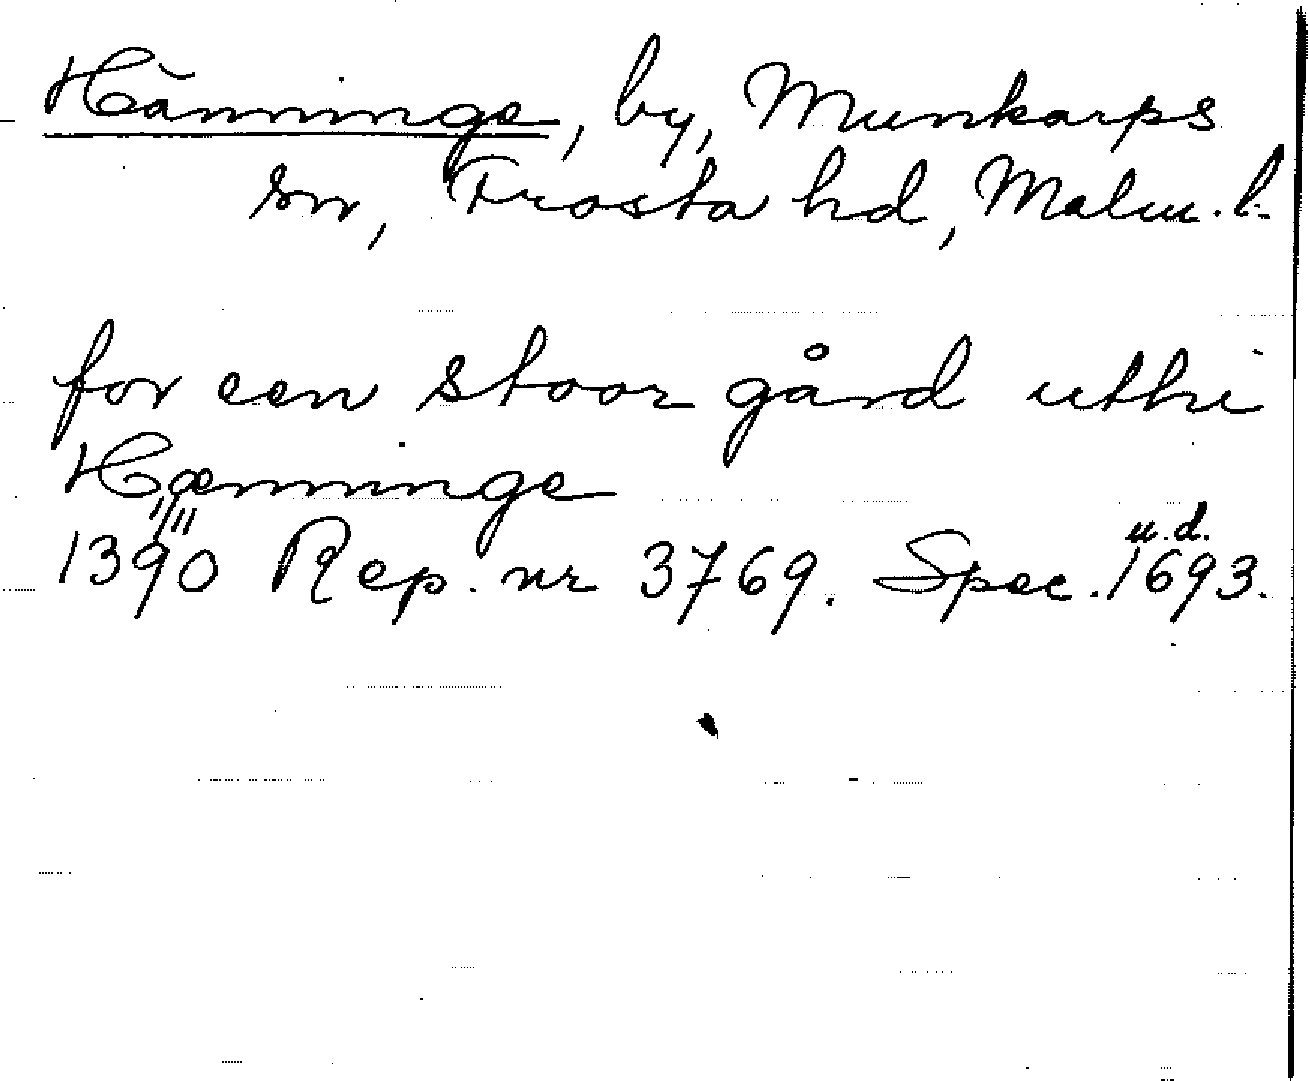 Hänninge, by, Munkarps
sn, Frosta hd, Malm. l.
for een stoor gård uthi
Hænninge
1390 Rep. nr 3769. Spec. u.d. 1693.